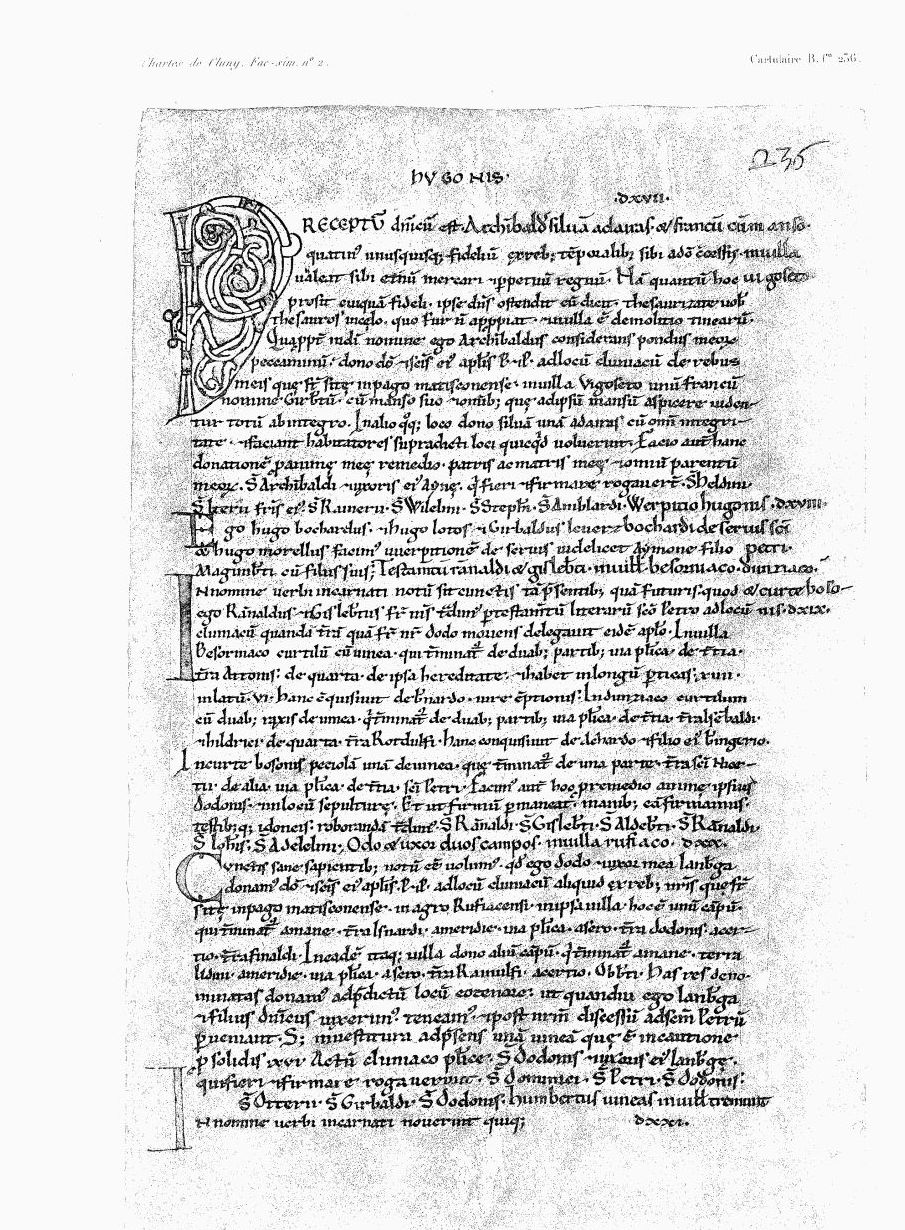 Chartes de Cluny. Fac-sim. nº 2.
Cartulaire B. fº 236.
236
hVGONIS.
.dxvii.
PRECEPTŪ dnicū est. Archibald' siluā adanas. & francū cum anso.
quatin' unusquisq; fideliū ex reb; tēporalib; sibi a dō cōcessis. in uilla
ualeat sibi mercari ippetuū regnū. Nā quantū hoc uigoseto
prosit cuiquā fideli. ipse dn̄s ostendit cū dicit. thesaurizate uob'
thesauros in celo. quo fur n̄ appropiat. uilla ē demolitio tinearū.
Quappt' in dī nomine ego Archibaldus considerans pondus meoꝝ
peccaminū. dono dō & scīs ei' aplīs P. & P. ad locū cluniacū de rebus
meis quę st̄ sitę in pago matisconense. in uilla Vigoseto unū francū
nomine Girbtū. cū manso suo & omīb; quę ad ipsū mansū aspicere uiden-
tur totū ab integro. In alio q̄q; loco dono siluā unā adanas cū omī integri-
tate. & faciant habitatores supradicti loci quicqd uoluerint. Facio aut hanc
donationē p animę meę remedio. patris ac matris meę & omniū parentū
meoꝝ. S Archibaldi & uxoris ei' q fieri & firmare rogauer̄t. S heldini
S Iteru frīs ei'. S Raineru. S Wilelmi. S Steph̄i. S Amblardi. Werpitio hugonis .dxviii.
Ego hugo bochardus. & hugo lotos & Girbaldus bochardi de seruis scī
& hugo morellus facim' uuerpitionē de seruis uidelicet Aymone filio petri.
Magimb̄ti. cū filiis suis; Testamtū ranaldi & gisleb̄ti. in uill besorniaco. dunziaco.
IN nomine uerbi incarnati notū sit cunctis tā psentib; quā futuris. quod & curte boso-
ego Rānaldus & Gislebtus fr̄ nīs pr̄ testamtū literarū scō Petro ad locū nis. dxix.
cluniacū quandā t̄rā quā fr̄ nr̄ dodo moriens delegauit eidē aplō. In uilla
Besorniaco curtilū cū uinea. qui t̄minat' de duab; partib; uia plica. de t̄tia.
t̄rā Attonis. de quarta. de ipsa hereditate. & habet in longū pticas. xvii.
in latū. vi. hanc cōquisiuit de b̄nardo. iure ēptionis. In dunziaco curtilum
cū duab; de uinea. q t̄minat' de duab; partib; uia plica. de t̄tia. t̄rā
& hildrici. de quarta. t̄rā Rotdulfi. hanc conquisiuit de & filio ei' b̄ingerio.
In curte bosonis peciolā unā de uinea. quę t̄minat' de una parte. t̄rā scī Nice-
tii. de alia. uia plica. de t̄tia. scī Petri. Facim' aut hoc p remedio animę ipsius
dodonis. & in locū sepulturę. Et ut firmū pmaneat. manib; eā firmamus.
testib;q; idoneis. roborandā S Rānaldi. S Gisleb̄ti. S Aldeb̄ti. S Rānaldi.
S Iob̄is. S Adelelmi. Odo & uxor duos campos. in uilla rufiaco. dxx.
CVnctis sane sapientib; notū eē uolum'. qd ego dodo & uxor mea lanb̄ga
donam' dō & scīs ei' aplīs. P. & P. ad locū cluniacū aliquid ex reb; nr̄is quę st̄
sitę in pago matisconense. in agro Rufiacensi. in ipsa uilla. hoc ē unū cāpū.
qui t̄minat' a mane. t̄rā Isnardi. a meridie. uia plica. a sero. t̄rā dodonis. a cer-
tio. t̄rā In eadē itaq; uilla dono aliū cāpū. q t̄minat' a mane. terra
a meridie. uia plica. a sero. t̄rā Ramulfi. a certio. Has res deno-
minatas donam' ad pdictū locū eo tenore. ut quandiu ego lanb̄ga
& filius dn̄icus uixerim'. teneam'. & post nr̄m discessū ad scm̄ Petrū
pueniant. inuestitura ad psens unā uineā quę ē in cautione
p solidis xxv. Actū cluniaco plice. S Dodonis & uxoris ei' lanb̄gę.
qui fieri & firmare rogauerunt. S Dominici. S Petri. S Dodonis.
S Otterii. S Girbaldi. S Dodonis. humbertus uineas in uill
IN nomine uerbi incarnati nouerint quiq;
dxxi.